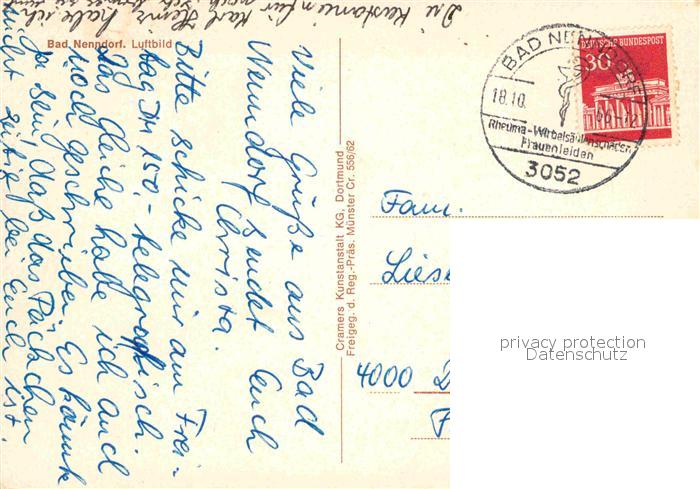 Bad Nenndorf. Luftbild
Viele Grüße aus Bad
Nenndorf sendet Euch
Christa.
Bitte schicke mir am Frei-
tag DM 150,- telegrafisch.
Das Gleiche habe ich auch
noch geschrieben. Es könnte
ja sein, daß das Päckchen
nicht zeitig bei Euch ist.
Du Kastanien für
Karl Heinz habe ich
Cramers Kunstanstalt KG. Dortmund
Freigeg. d. Reg.-Präs. Münster Cr. 556/62
BAD NENNDORF 1
18.10. 66-12
Rheuma-Wirbelsäulenschäden
Frauenleiden
3052
DEUTSCHE BUNDESPOST
30
Fam.
Liese
4000 D
privacy protection
Datenschutz